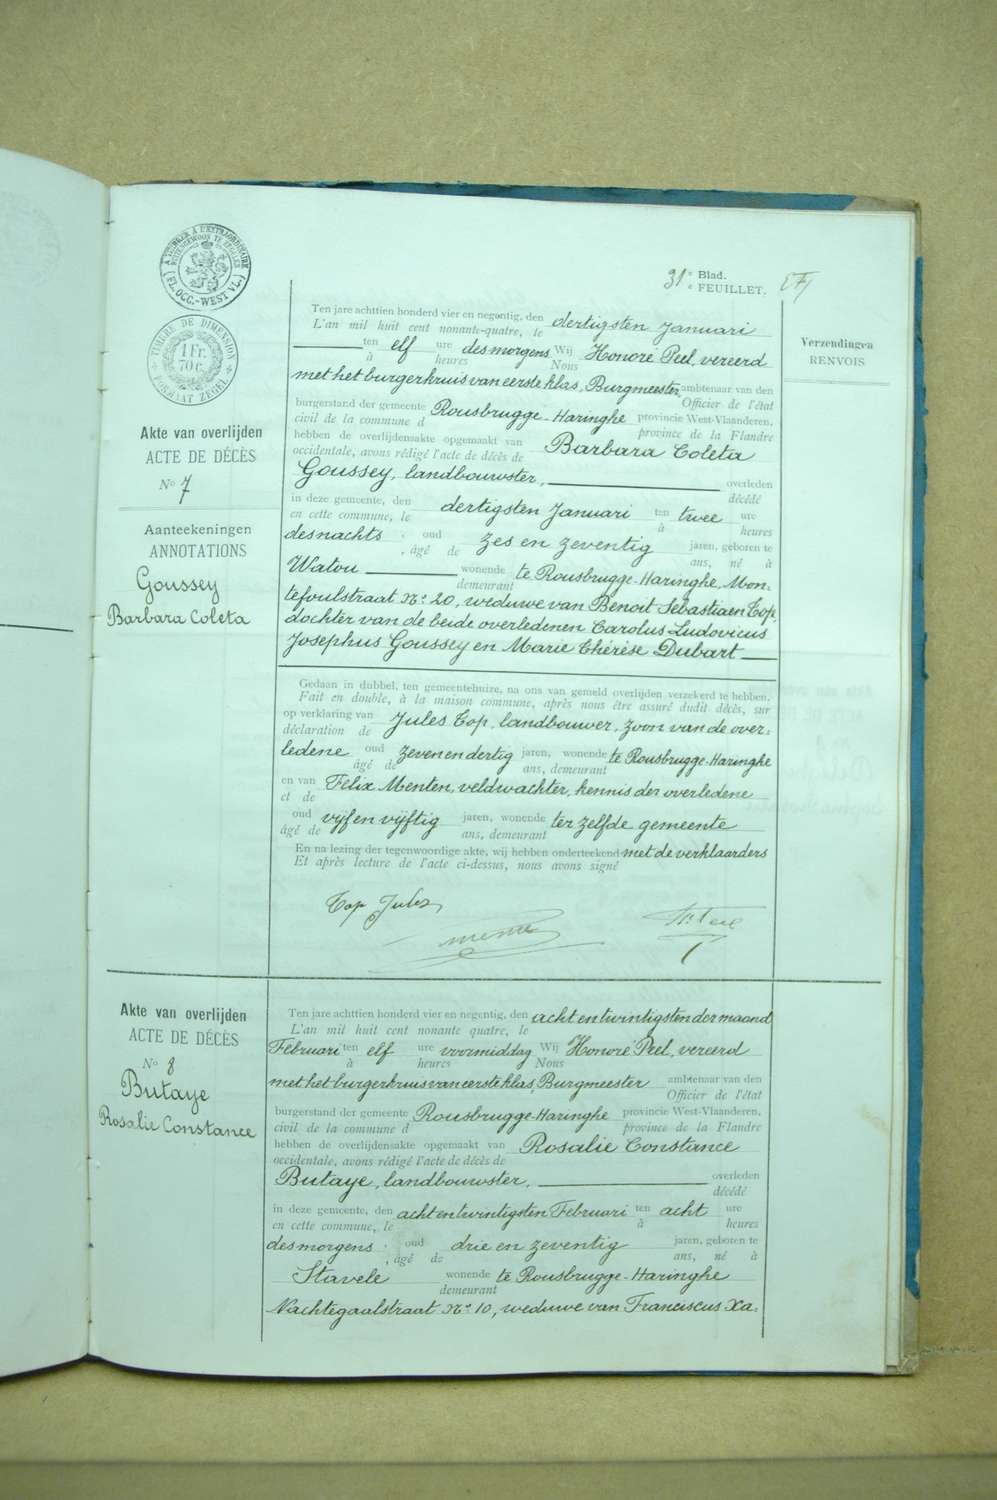 A TIMBRER A L'EXTRAORDINAIRE
BUITENGEWOON TE ZEGELEN
(FL. OCC.-WEST VL.)
TIMBRE DE DIMENSION
1 Fr. 70 c.
FORMAAT ZEGEL
31e Blad.
e FEUILLET.
Verzendingen
RENVOIS
Akte van overlijden
ACTE DE DÉCÈS
No 7
Aanteekeningen
ANNOTATIONS
Goussey
Barbara Coleta
Ten jare achttien honderd vier en negentig, den dertigsten Januari
L'an mil huit cent nonante-quatre, le
ten elf ure desmorgens Wij Honoré Peel, vereerd
à heures Nous
met het burgerkruis van eerste klas, Burgmeester ambtenaar van den
Officier de l'état
burgerstand der gemeente Rousbrugge-Haringhe provincie West-Vlaanderen,
civil de la commune d province de la Flandre
hebben de overlijdensakte opgemaakt van Barbara Coleta
occidentale, avons rédigé l'acte de décès de
Goussey, landbouwster, overleden
décédé
in deze gemeente, den dertigsten Januari ten twee ure
en cette commune, le à heures
desnachts, oud zes en zeventig jaren, geboren te
, âgé de ans, né à
Watou wonende te Rousbrugge-Haringhe, Mon-
demeurant
tefoulstraat No 20, weduwe van Benoit Sebastiaen Top,
dochter van de beide overledenen Carolus Ludovicus
Josephus Goussey en Marie Thérèse Dubart
Gedaan in dubbel, ten gemeentehuize, na ons van gemeld overlijden verzekerd te hebben,
Fait en double, à la maison commune, après nous être assuré dudit décès, sur
op verklaring van Jules Top, landbouwer, zoon van de over-
déclaration de
ledene oud zeven en dertig jaren, wonende te Rousbrugge-Haringhe
âgé de ans, demeurant
en van Félix Menten, veldwachter, kennis der overledene
et de
oud vijf en vijftig jaren, wonende ter zelfde gemeente
âgé de ans, demeurant
En na lezing der tegenwoordige akte, wij hebben onderteekend met de verklaarders
Et après lecture de l'acte ci-dessus, nous avons signé
Top Jules
Akte van overlijden
ACTE DE DÉCÈS
No 8
Butaye
Rosalie Constance
Ten jare achttien honderd vier en negentig, den acht en twintigsten der maand
L'an mil huit cent nonante quatre, le
Februari ten elf ure voormiddag Wij Honoré Peel, vereerd
à heures Nous
met het burgerkruis van eerste klas, Burgmeester ambtenaar van den
Officier de l'état
burgerstand der gemeente Rousbrugge-Haringhe provincie West-Vlaanderen,
civil de la commune d province de la Flandre
hebben de overlijdensakte opgemaakt van Rosalie Constance
occidentale, avons rédigé l'acte de décès de
Butaye, landbouwster, overleden
décédé
in deze gemeente, den acht en twintigsten Februari ten acht ure
en cette commune, le à heures
desmorgens, oud drie en zeventig jaren, geboren te
, âgé de ans, né à
Stavele wonende te Rousbrugge-Haringhe
demeurant
Nachtegaalstraat No 10, weduwe van Franciscus Xa-